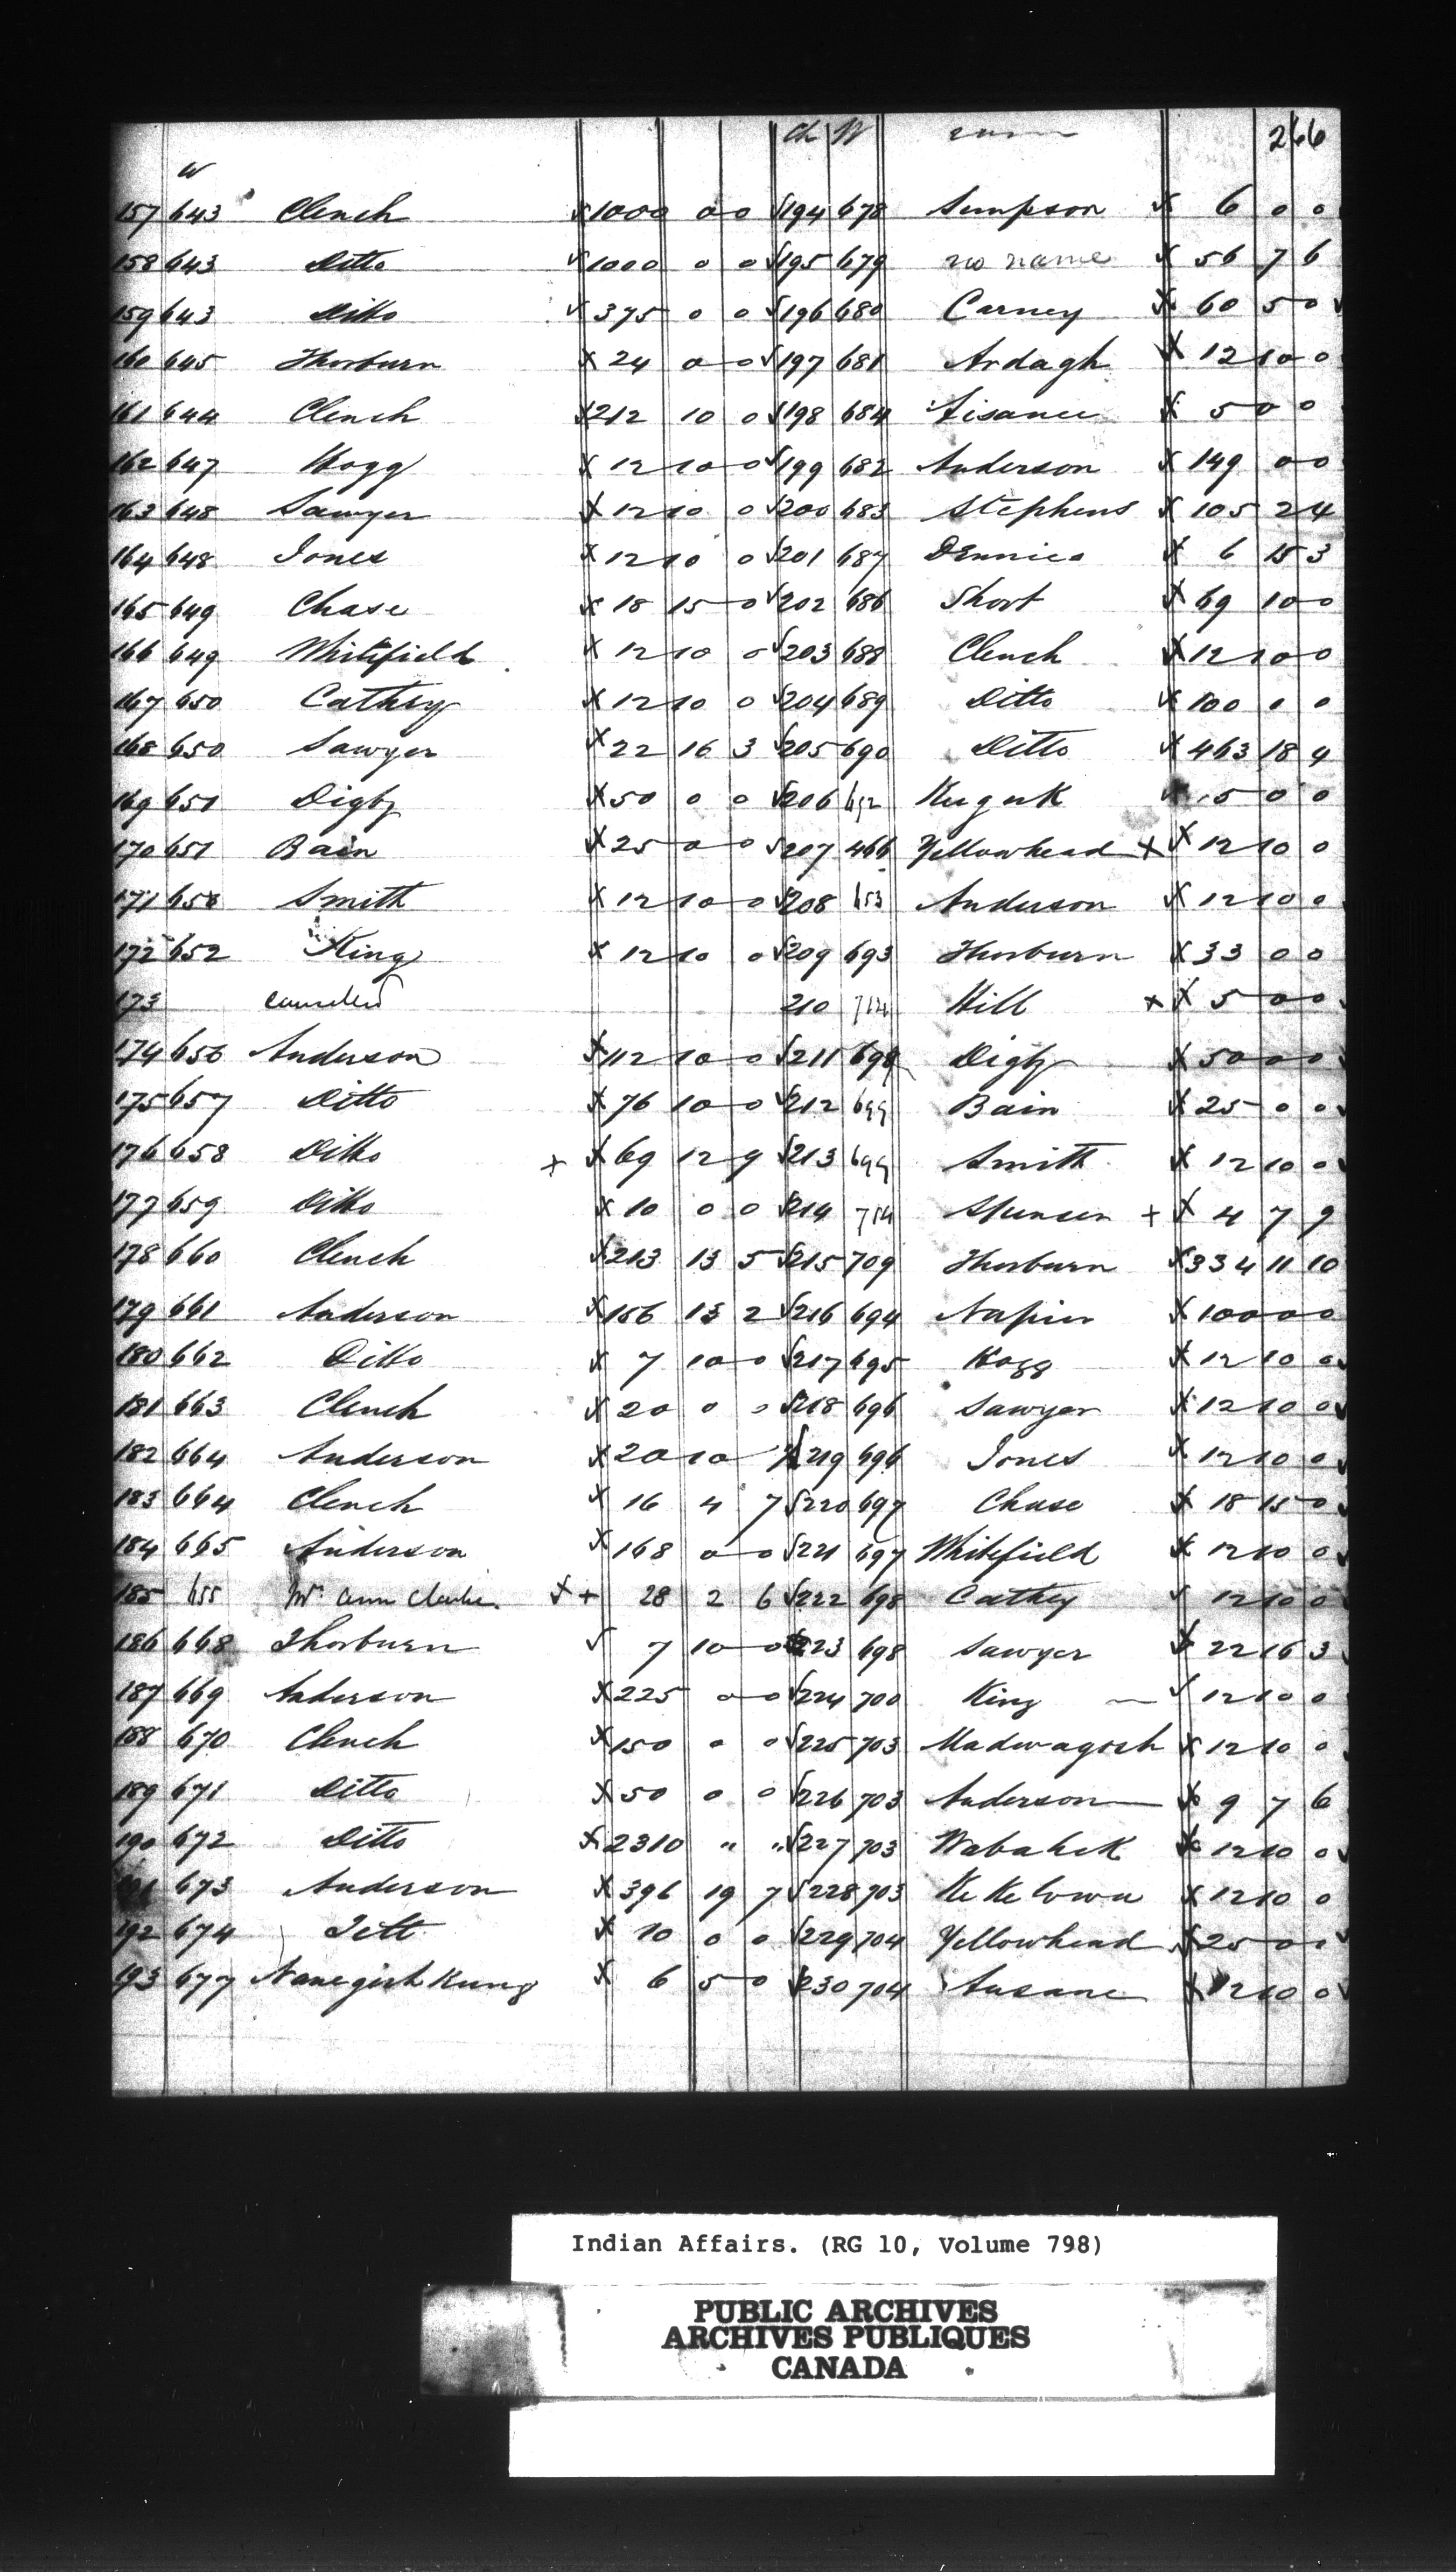 Ch W 266
W
157 643 Clench 1000 0 0 194 678 Simpson 6 0 0
158 643 Ditto 1000 0 0 195 679 no name 56 7 6
159 643 Ditto 375 0 0 196 680 Carney 60 5 0
160 645 Thorburn 24 0 0 197 681 Ardagh 12 10 0
161 644 Clench 212 10 0 198 684 Aisance 5 0 0
162 647 Hogg 12 10 0 199 682 Anderson 149 0 0
163 648 Sawyer 12 10 0 200 683 Stephens 105 2 4
164 648 Jones 12 10 0 201 687 Dennies 6 15 3
165 649 Chase 18 15 0 202 686 Short 69 10 0
166 649 Whitefield 12 10 0 203 688 Clench 12 10 0
167 650 Cathey 12 10 0 204 689 Ditto 100 0 0
168 650 Sawyer 22 16 3 205 690 Ditto 463 18 4
169 651 Digby 50 0 0 206 692 Keguk 15 0 0
170 651 Bain 25 0 0 207 466 Yellowhead 12 10 0
171 658 Smith 12 10 0 208 653 Anderson 12 10 0
172 652 King 12 10 0 209 693 Thorburn 33 0 0
173 canceled 210 714 Hill 5 0 0
174 656 Anderson 112 10 0 211 698 Digby 50 0 0
175 657 Ditto 76 10 0 212 699 Bain 25 0 0
176 658 Ditto 69 12 9 213 699 Smith 12 10 0
177 659 Ditto 10 0 0 214 714 Spencer 4 7 9
178 660 Clench 213 13 5 215 709 Thorburn 334 11 10
179 661 Anderson 156 13 2 216 694 Napier 100 0 0
180 662 Ditto 7 10 0 217 695 Hogg 12 10 0
181 663 Clench 20 0 0 218 696 Sawyer 12 10 0
182 664 Anderson 20 10 219 696 Jones 12 10 0
183 664 Clench 16 4 7 220 697 Chase 18 15 0
184 665 Anderson 168 0 0 221 697 Whitefield 12 10 0
185 655 Mrs Ann 28 2 6 222 698 Cathey 12 10 0
186 668 Thorburn 7 10 0 223 698 Sawyer 22 16 3
187 669 Anderson 225 0 0 224 700 King 12 10 0
188 670 Clench 150 0 0 225 703 Madwagosh 12 10 0
189 671 Ditto 50 0 0 226 703 Anderson 9 7 6
190 672 Ditto 2310 " " 227 703 Wabahek 12 10 0
673 Anderson 396 19 7 228 703 12 10 0
192 674 Jett 10 0 0 229 704 Yellowhead 25 0 0
193 677 Nanegishkung 6 5 0 230 704 Aisance 12 10 0
Indian Affairs. (RG 10, Volume 798)
PUBLIC ARCHIVES
ARCHIVES PUBLIQUES
CANADA